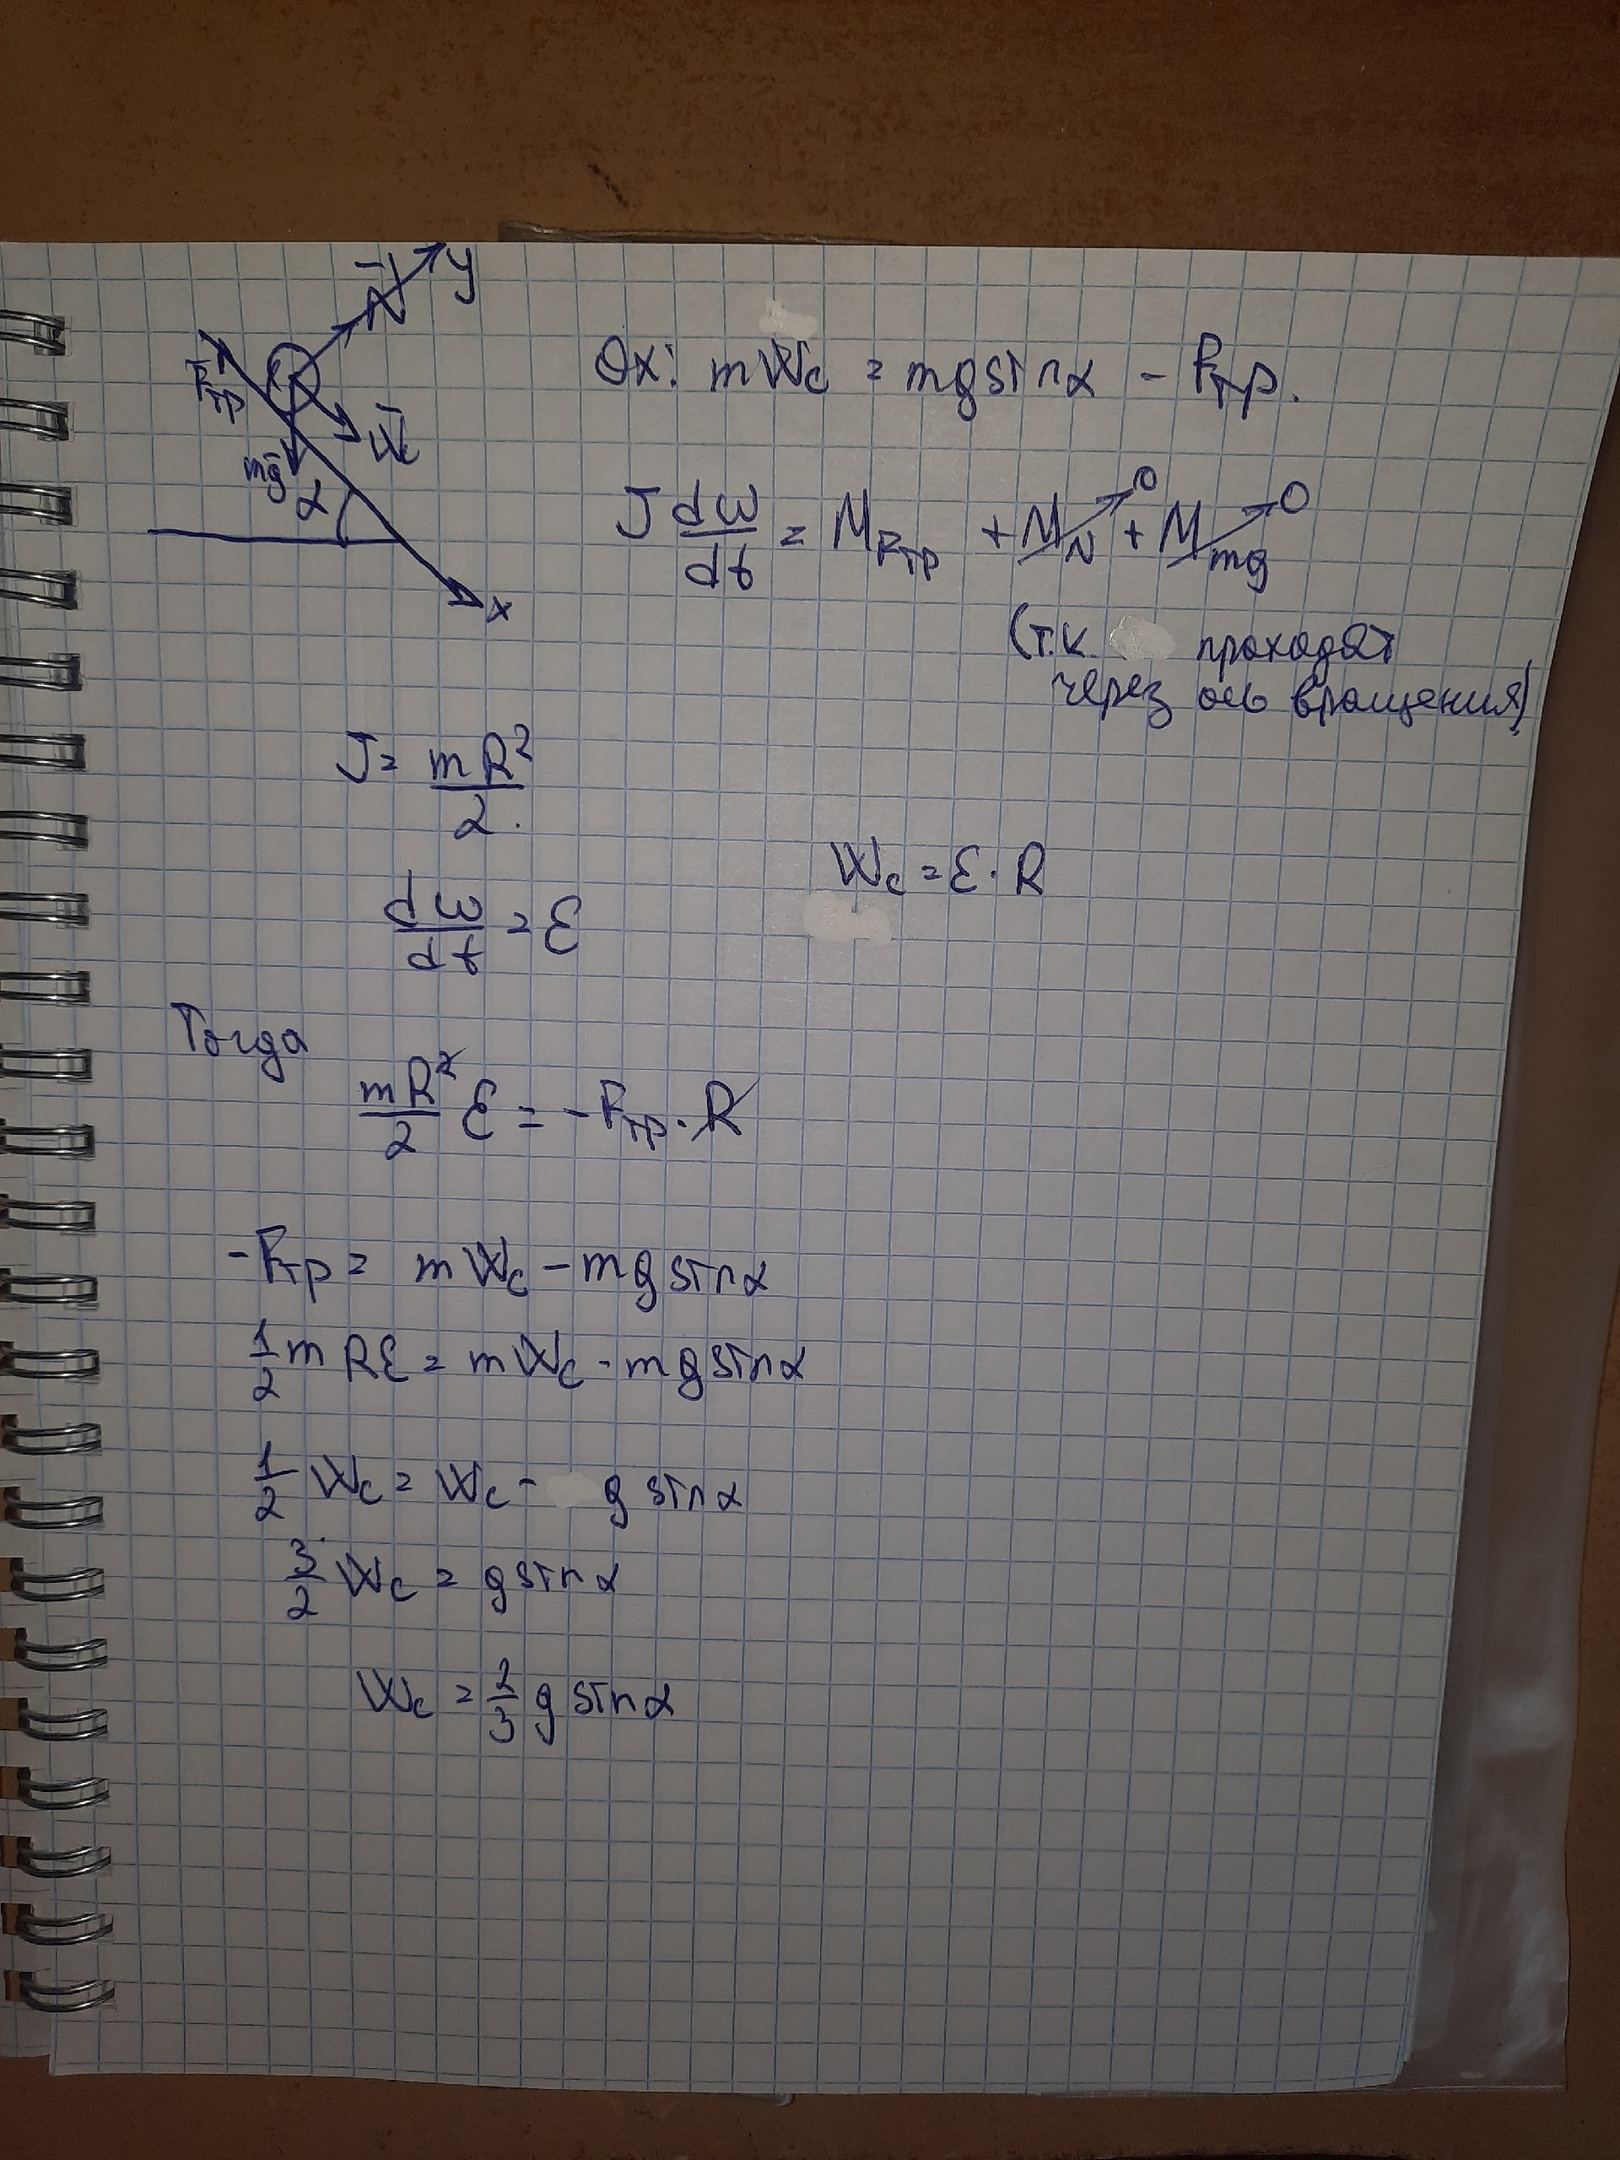 N̄ y
F̄тр
W̄c
mḡ
α
x
Ox: mWc = mg sin α - Fтр.
J dω/dt = M_Fтр + M_N→0 + M_mg→0
(т.к. проходят
через ось вращения)
J = mR²/2.
Wc = ε·R
dω/dt = ε
Тогда
mR²/2 ε = -Fтр·R
-Fтр = mWc - mg sin α
1/2 mRε = mWc - mg sin α
1/2 Wc = Wc - g sin α
3/2 Wc = g sin α
Wc = 2/3 g sin α